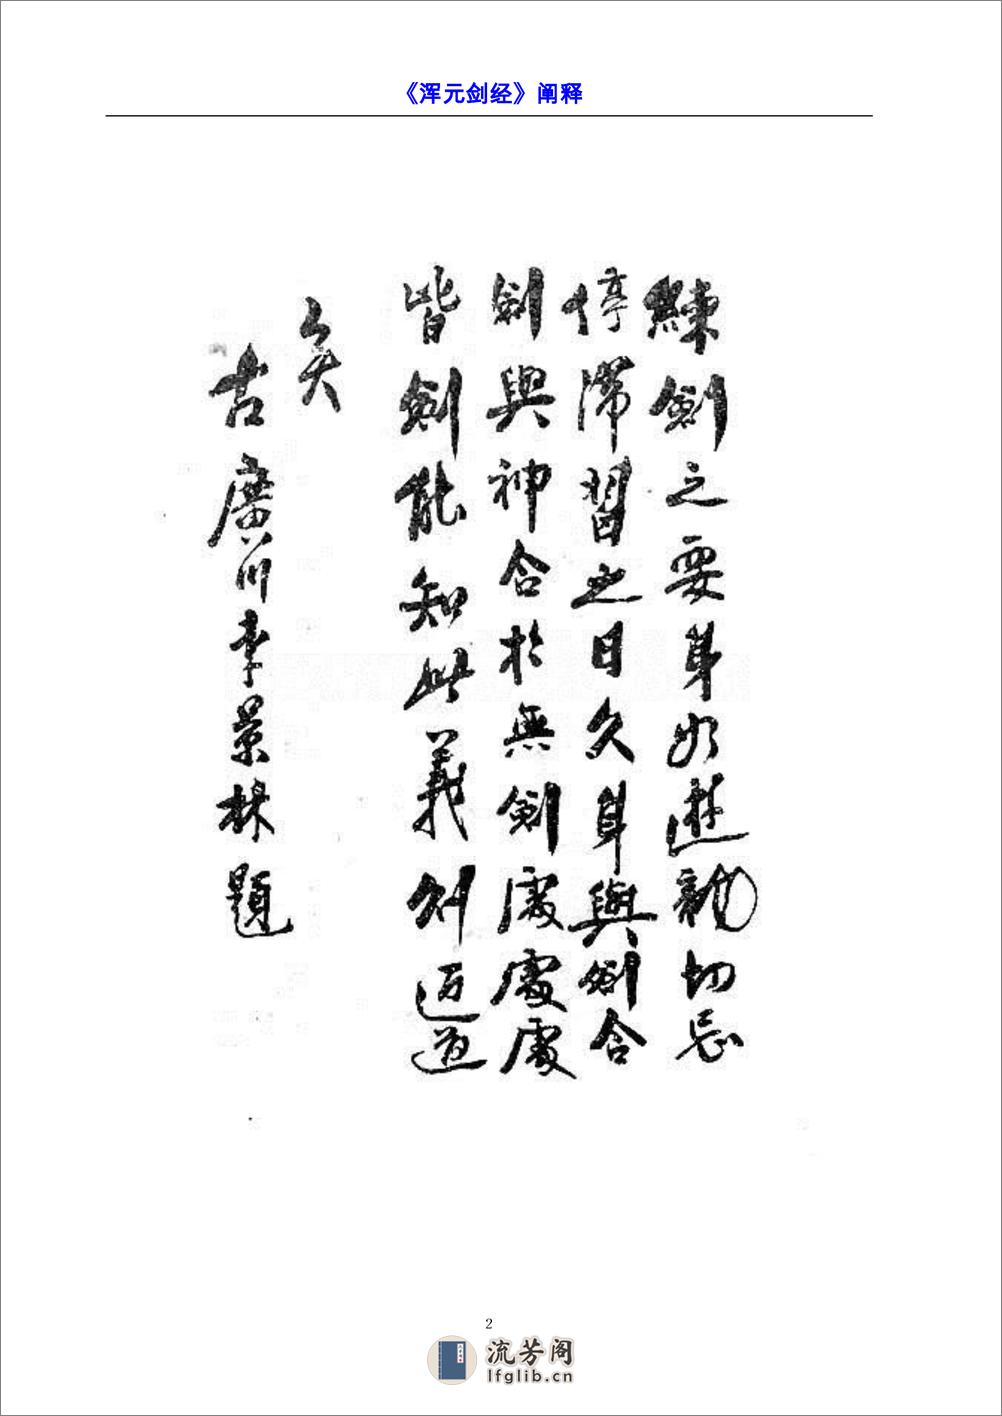 《浑元剑经》阐释
練劍之要身如遊龍切忌
停滯習之日久身與劍合
劍與神合於無劍處處處
皆劍能知此義則近道
矣
古廣川李景林題
2
流芳阁
lfglib.cn